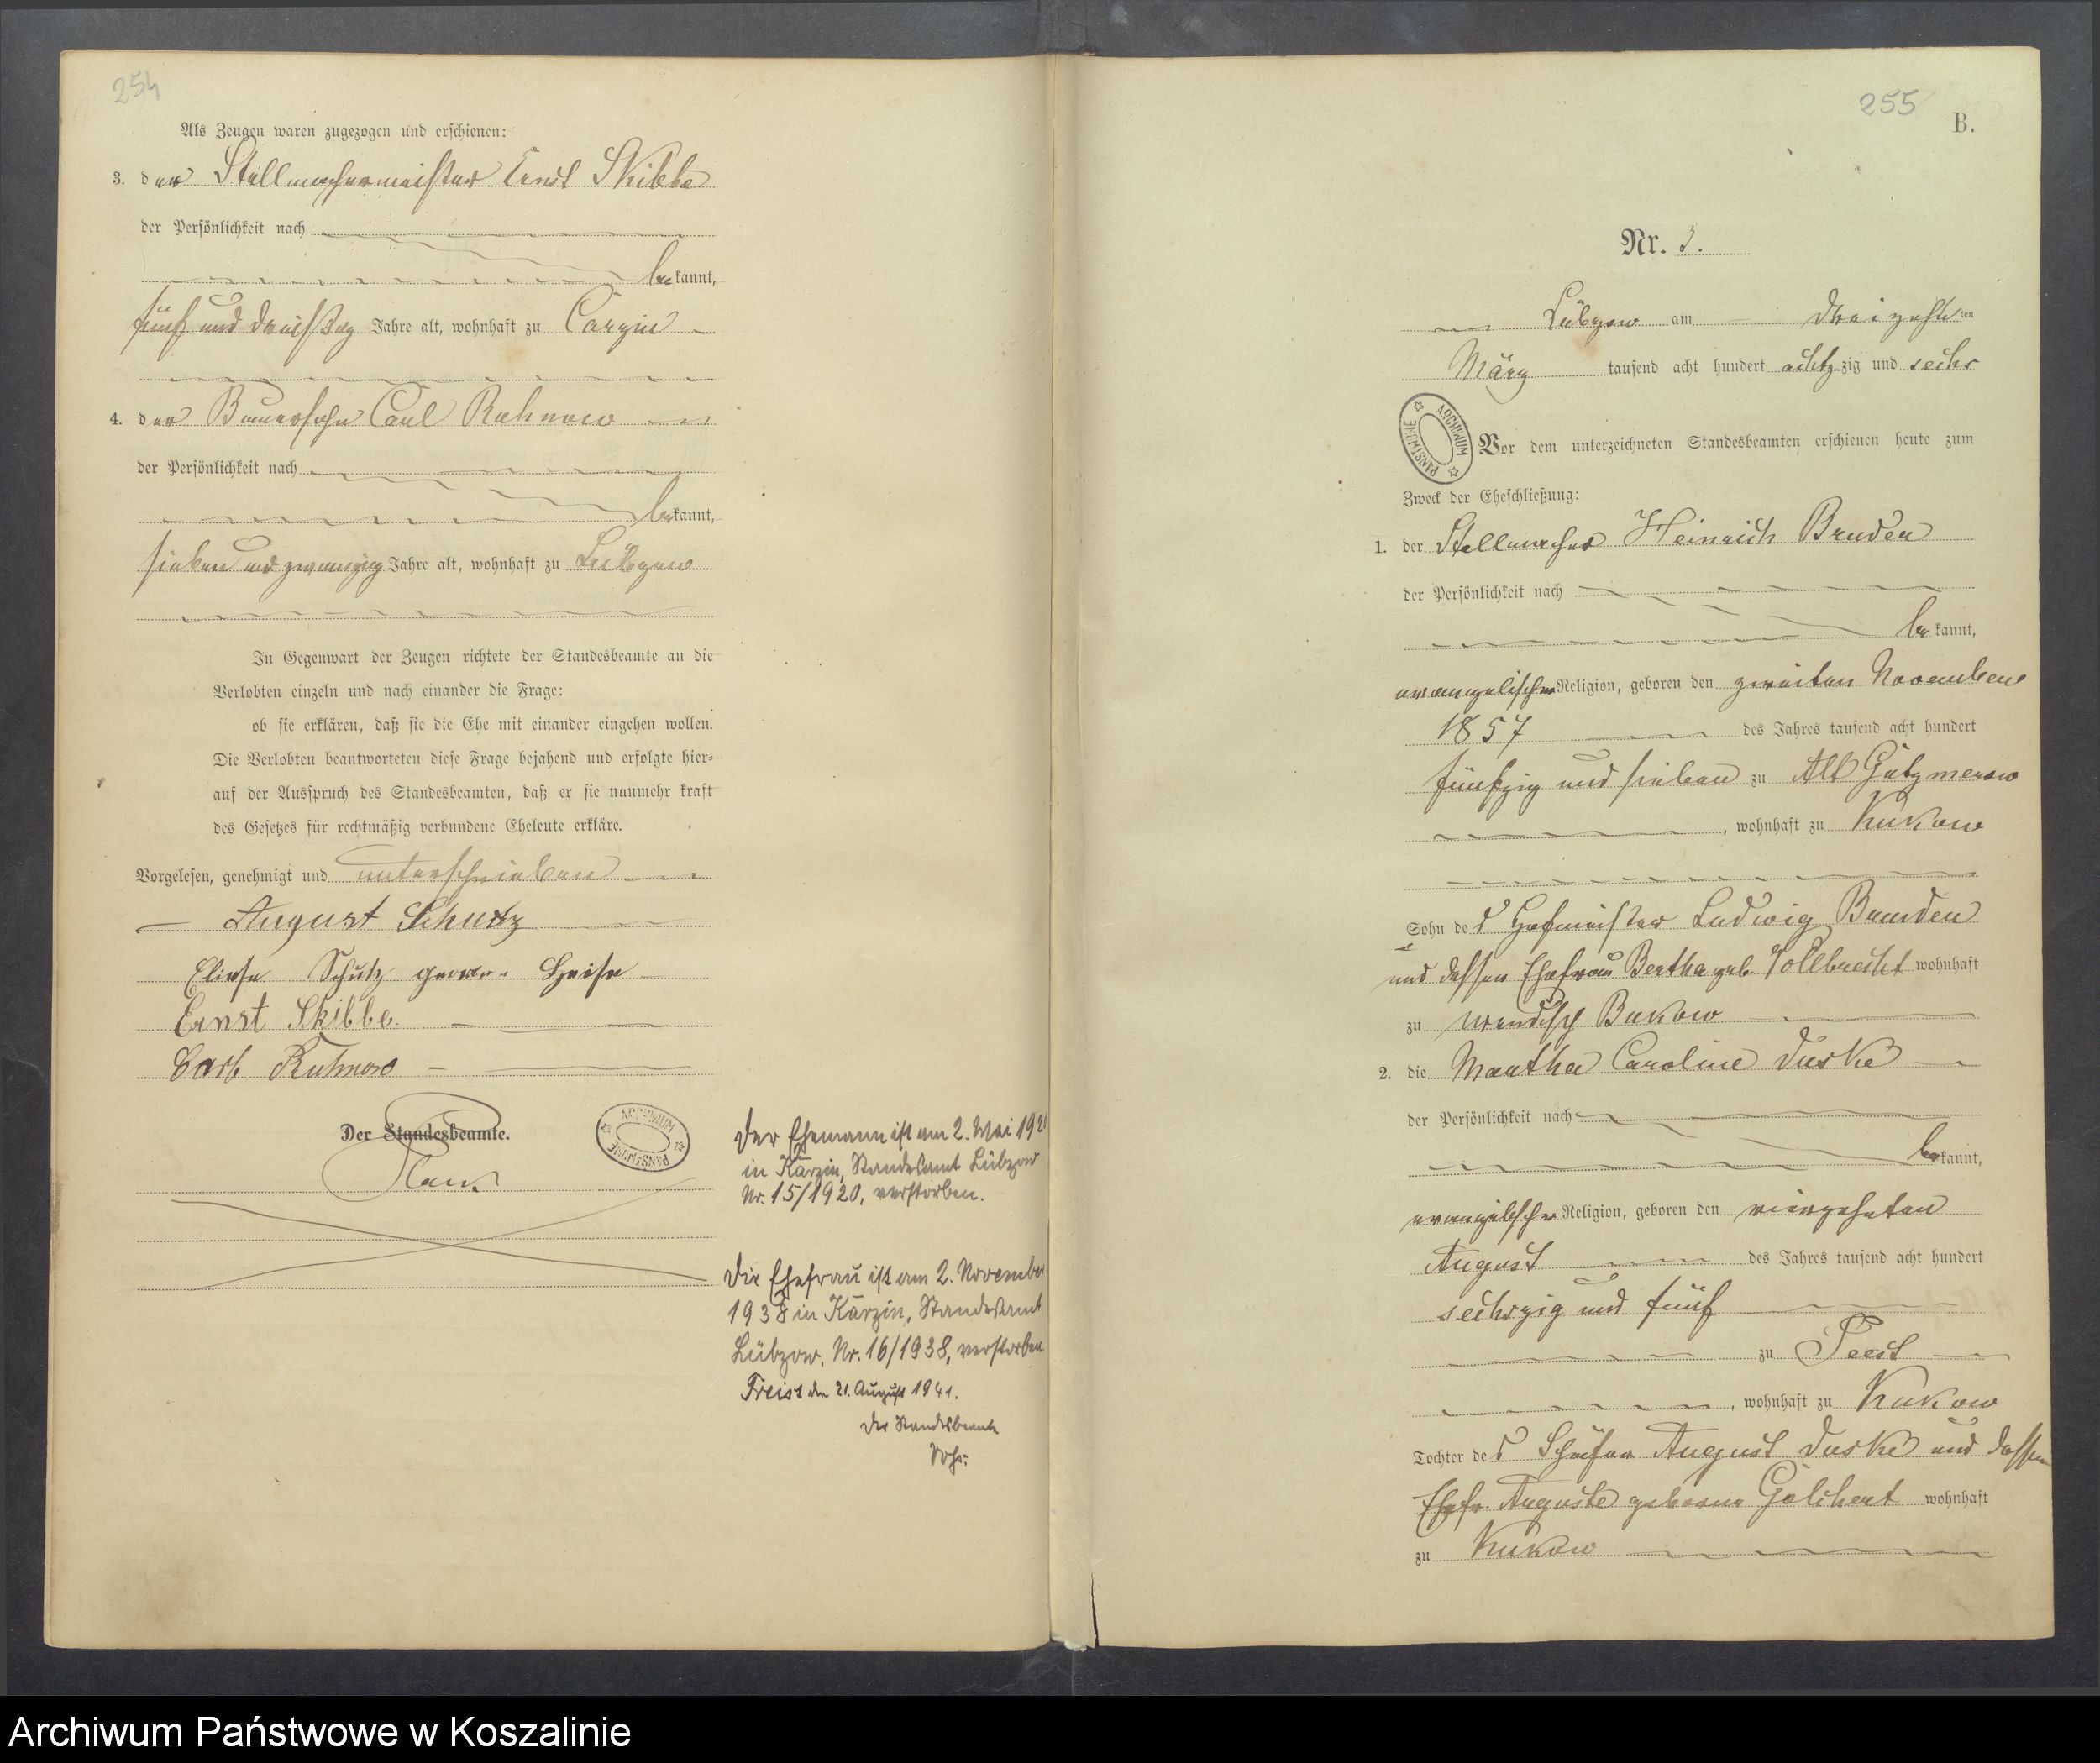 254
Als Zeugen waren zugezogen und erschienen:
3. der Stellmachermeister Ernst Skibbe
der Persönlichkeit nach
bekannt,
fünf und dreißig Jahre alt, wohnhaft zu Carzin
4. der Bauersohn Carl Ruhnow
der Persönlichkeit nach
bekannt,
sieben und zwanzig Jahre alt, wohnhaft zu Lübzow
In Gegenwart der Zeugen richtete der Standesbeamte an die
Verlobten einzeln und nach einander die Frage:
ob sie erklären, daß sie die Ehe mit einander eingehen wollen.
Die Verlobten beantworteten diese Frage bejahend und erfolgte hier-
auf der Ausspruch des Standesbeamten, daß er sie nunmehr kraft
des Gesetzes für rechtmäßig verbundene Eheleute erkläre.
Vorgelesen, genehmigt und unterschrieben
August Schutz
Schütz Heise
Ernst Skibbe.
Carl Ruhnow
Der Standesbeamte.
ARCHIWUM PAŃSTWOWE
Der Ehemann ist am 2. Mai
in Karzin, Standesamt Lübzow
Nr. 15/1920, verstorben.
Die Ehefrau ist am 2. November
1938 in Karzin, Standesamt
Lübzow, Nr. 16/1938, verstorben.
Freist den 21. August 1941.
Der Standesbeamte
255
B.
Nr. 3.
Lübzow am dreizehnten
März tausend acht hundert achtzig und sechs
ARCHIWUM PAŃSTWOWE
Vor dem unterzeichneten Standesbeamten erschienen heute zum
Zweck der Eheschließung:
1. der Stellmacher Heinrich
der Persönlichkeit nach
bekannt,
evangelischer Religion, geboren den zweiten November
1857 des Jahres tausend acht hundert
fünfzig und sieben zu Alt Gutzmerow
, wohnhaft zu Kukow
Sohn des Hofmeister Ludwig
und dessen Ehefrau Bertha geb. Vollbrecht wohnhaft
zu wendisch Bukow
2. die Martha Caroline Duske
der Persönlichkeit nach
bekannt,
evangelischer Religion, geboren den vierzehnten
August des Jahres tausend acht hundert
sechszig und fünf
zu Peest
, wohnhaft zu Kukow
Tochter des Schäfer August Duske und dessen
Ehefr. Auguste geborne wohnhaft
zu Kukow
Archiwum Państwowe w Koszalinie